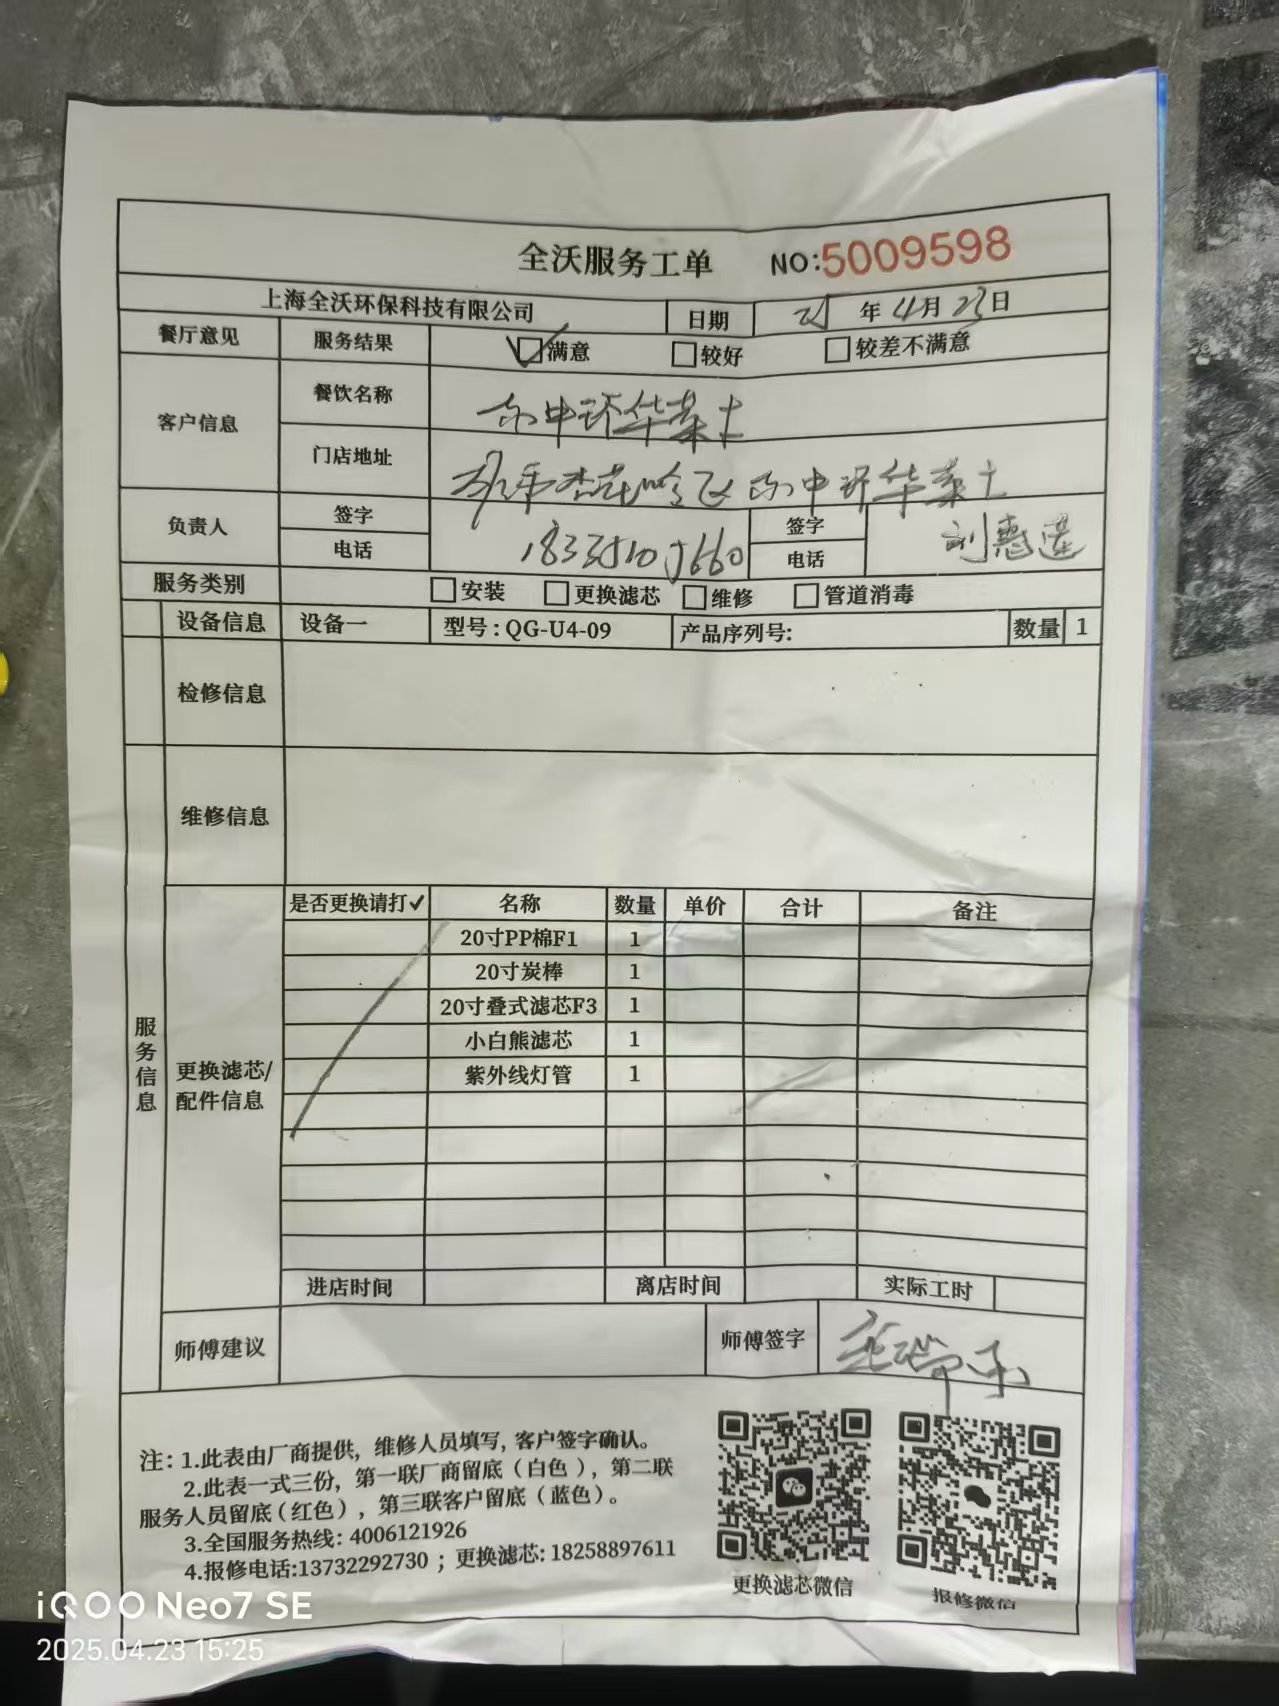 全沃服务工单 NO:5009598
上海全沃环保科技有限公司 日期 25年4月23日
餐厅意见 服务结果 ✓□满意 □较好 □较差不满意
客户信息 餐饮名称
中环华莱士
门店地址
中环华莱士
负责人 签字 签字 刘
电话 电话
服务类别 □安装 □更换滤芯 □维修 □管道消毒
设备信息 设备一 型号:QG-U4-09 产品序列号: 数量 1
检修信息
维修信息
服务信息
更换滤芯/配件信息
是否更换请打✓ 名称 数量 单价 合计 备注
20寸PP棉F1 1
20寸炭棒 1
20寸叠式滤芯F3 1
小白熊滤芯 1
紫外线灯管 1
进店时间 离店时间 实际工时
师傅建议 师傅签字
注:1.此表由厂商提供,维修人员填写,客户签字确认。
2.此表一式三份,第一联厂商留底(白色),第二联
服务人员留底(红色),第三联客户留底(蓝色)。
3.全国服务热线:4006121926
4.报修电话:13732292730;更换滤芯:18258897611
更换滤芯微信 报修微信
iQOO Neo7 SE
2025.04.23 15:25